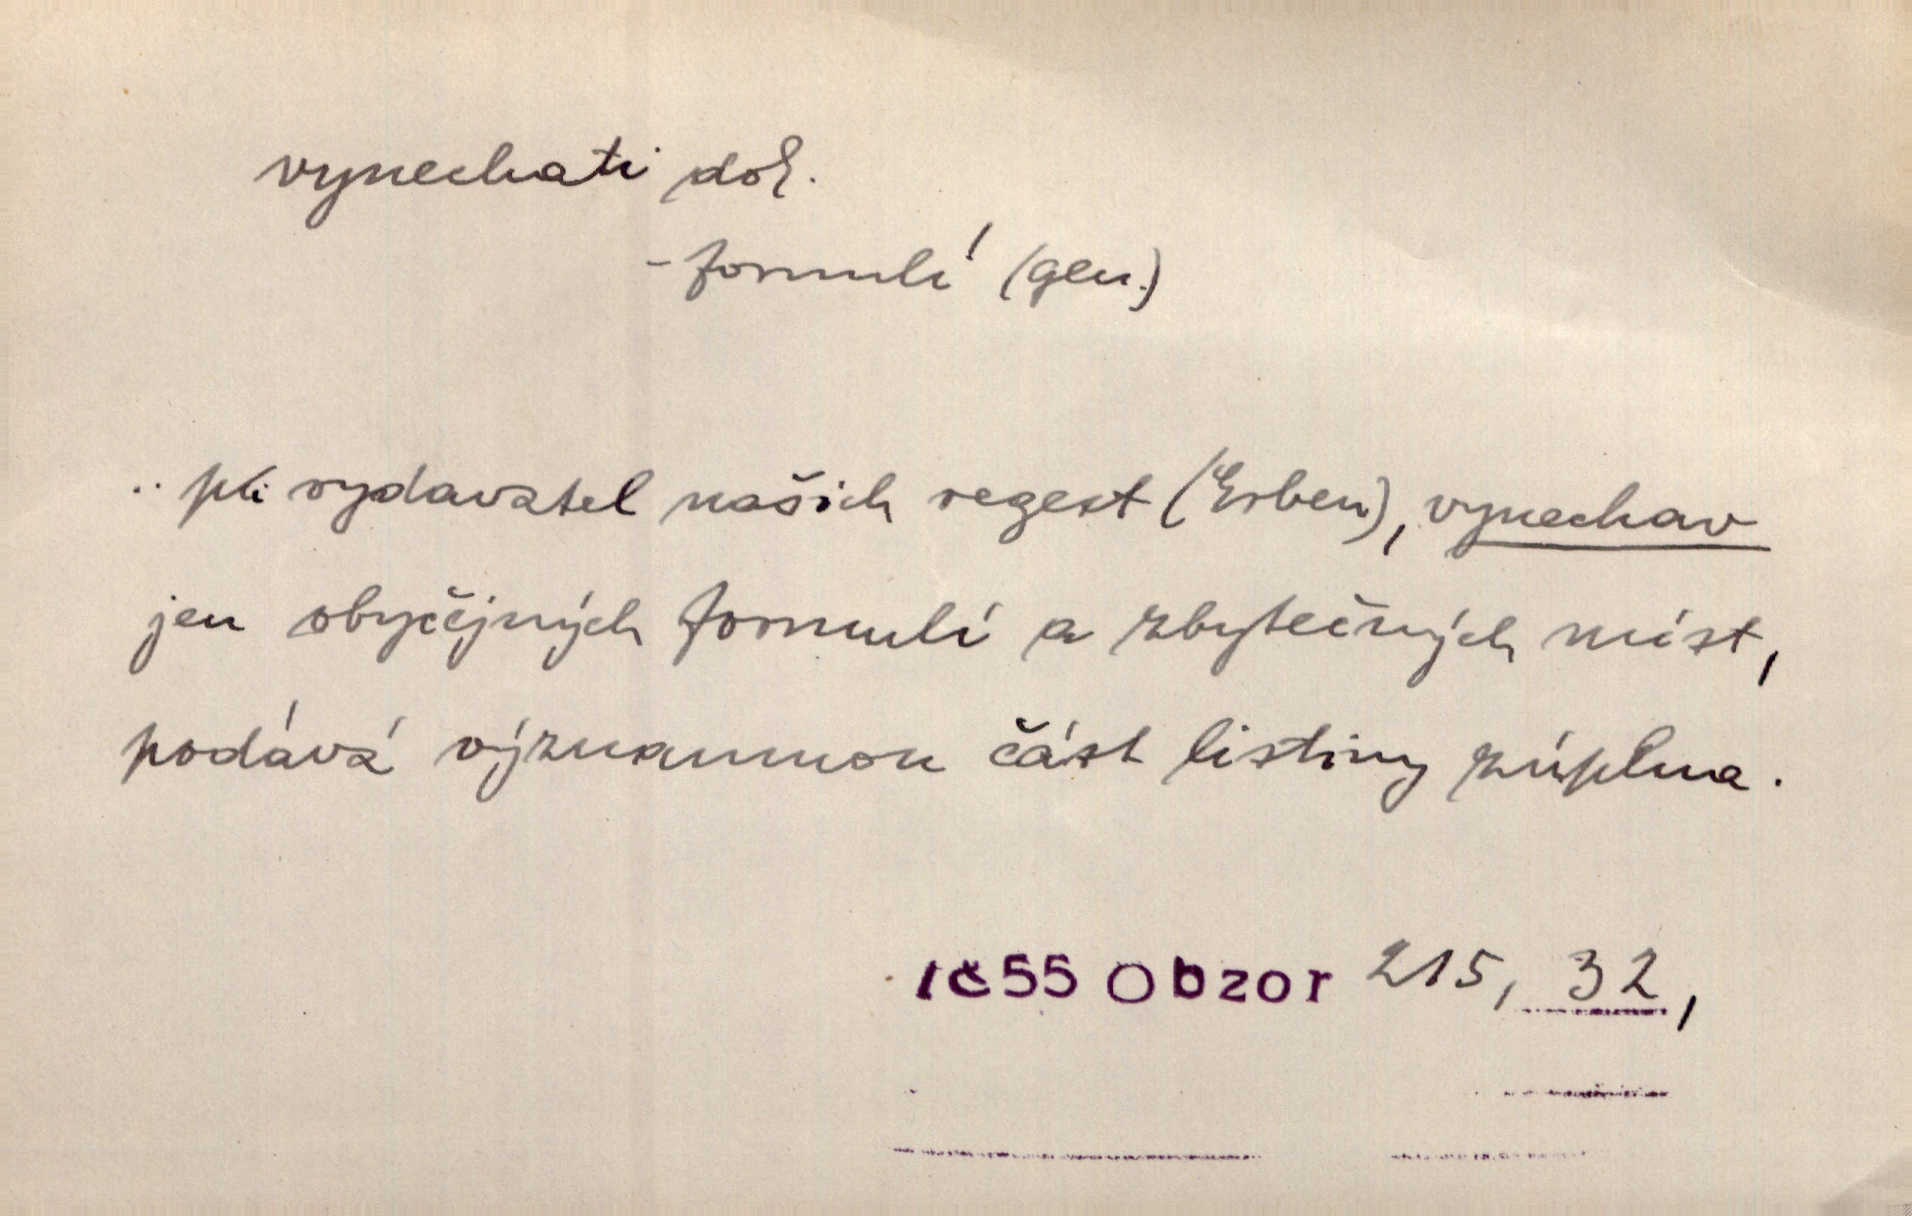 vynechati dok.
- formulí (gen.)
.. pří vydavatel našich regest (Erben), vynechav
jen obyčejných formulí a zbytečných míst,
podává významnou část listiny zúplna.
1č55 Obzor 215, 32,